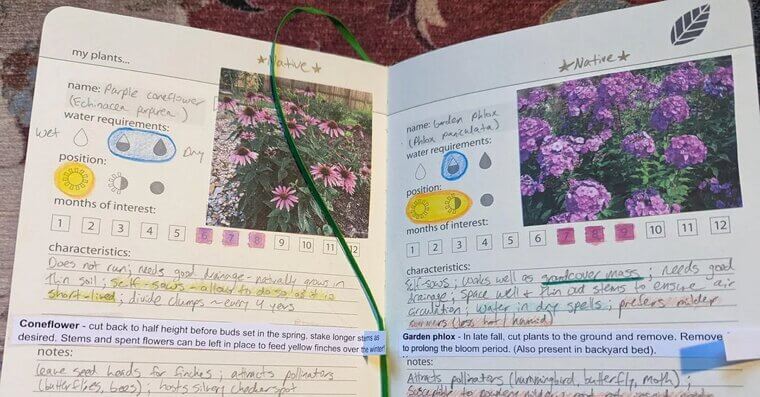 my plants...
★Native★
name: Purple coneflower
(Echinacea purpurea)
water requirements:
Wet
Dry
position:
months of interest:
1 2 3 4 5 6 7 8 9 10 11 12
characteristics:
Does not run; needs good drainage - naturally grows in
thin soil; self-sows - allow to do so as it is
short-lived; divide clumps ~ every 4 yers
Coneflower - cut back to half height before buds set in the spring, stake longer stems as
desired. Stems and spent flowers can be left in place to feed yellow finches over the winter!
notes:
leave seed heads for finches; attracts pollinators
(butterflies, bees); hosts silvery checkerspot
★Native★
name: Garden Phlox
(Phlox paniculata)
water requirements:
position:
months of interest:
1 2 3 4 5 6 7 8 9 10 11 12
characteristics:
Self-sows; works well as groundcover mass; needs good
drainage; space well & thin out stems to ensure air
circulation; water in dry spells; prefers milder
summers (less hot / humid)
Garden phlox - In late fall, cut plants to the ground and remove. Remove
to prolong the bloom period. (Also present in backyard bed).
notes:
Attracts pollinators (hummingbird, butterfly, moth);
susceptible to powdery mildew